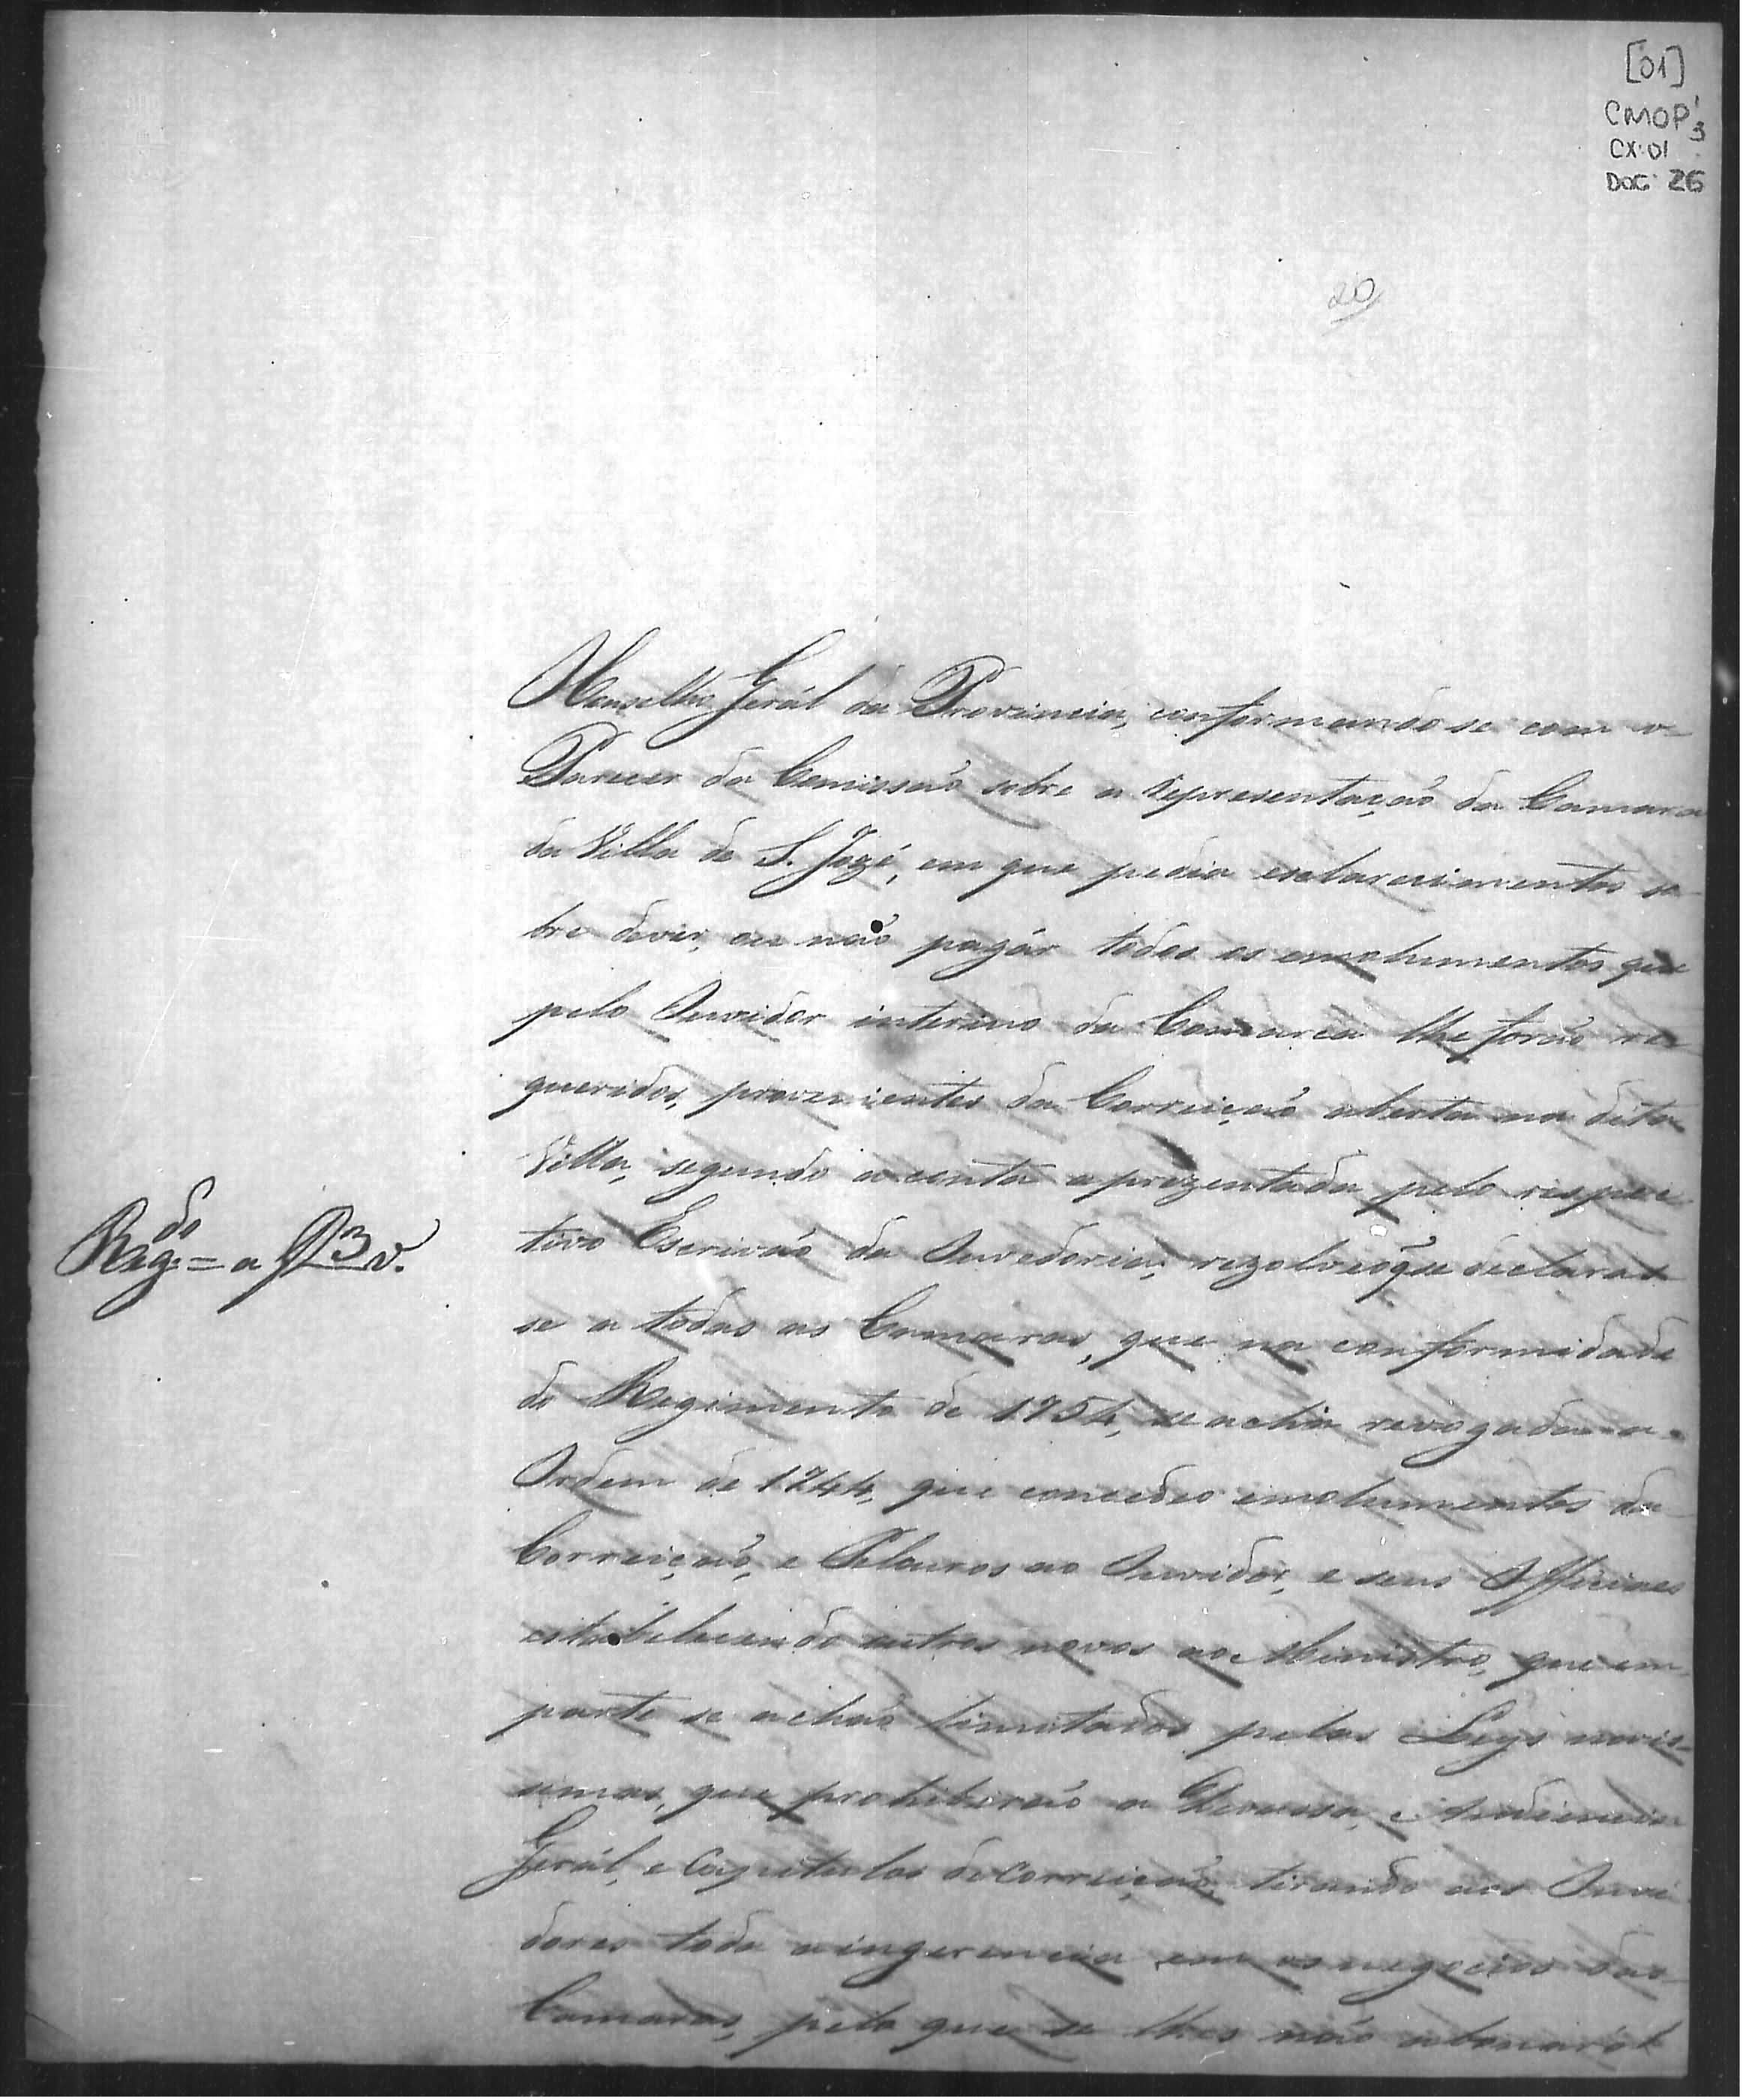 [01]
CMOP 3
CX: 01
DOC: 26
20
O Conselho Gerál da Provincia, conformando se com o
Parecer da Comissaõ sobre a representaçaõ da Camara
da Villa de S. Jozé, em que pedia esclarecimentos so
bre dever, ou naõ pagár todos os emolumentos que
pelo Ouvidor interino da Comarca lhe foraõ re
queridos, provenientes da Correiçaõ aberta na dita
Villa, segundo a conta aprezentada pelo respec
tivo Escrivaõ da Ouvedoria, rezolveo que declaras
se a todas as Camaras, que na conformidade
do Regimento de 1754, se acha revogada a
Ordem de 1744, que concedeo emolumentos da
Correiçaõ, e Pelouros ao Ouvidor, e seus Officiaes
estabelecendo outros novos ao Ministro, que em
parte se achaõ limitados pelas Leys novis
simas, que prohibiraõ a Devassa, e Audiencia
Gerál, e Capitulos de Correiçaõ, tirando aos Ouvi
dores toda a ingerencia em os negocios das
Camaras, pelo que se lhes não abonará
Reg.do = a f 3 v.